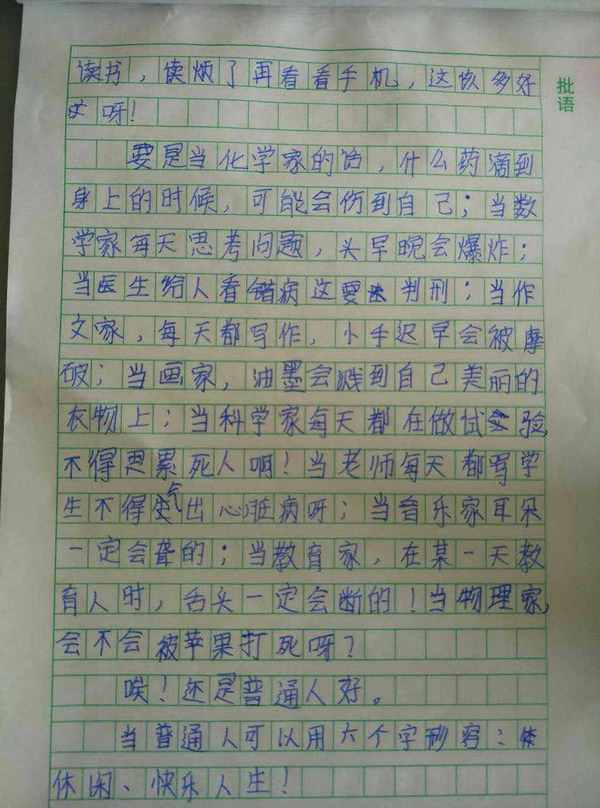 批语
读书，读烦了再看看手机，这该多好
呀！
要是当化学家的话，什么药滴到
身上的时候，可能会伤到自己；当数
学家每天思考问题，头早晚会爆炸；
当医生给人看错病这要判刑；当作
文家，每天都写作，小手迟早会被摩
破；当画家，油墨会溅到自己美丽的
衣物上；当科学家每天都在做试验
不得思累死人啊！当老师每天都骂学
生不得气出心脏病呀；当音乐家耳朵
一定会聋的；当教育家，在某一天教
育人时，舌头一定会断的！当物理家，
会不会被苹果打死呀？
唉！还是普通人好。
当普通人可以用六个字形容：
休闲、快乐人生！